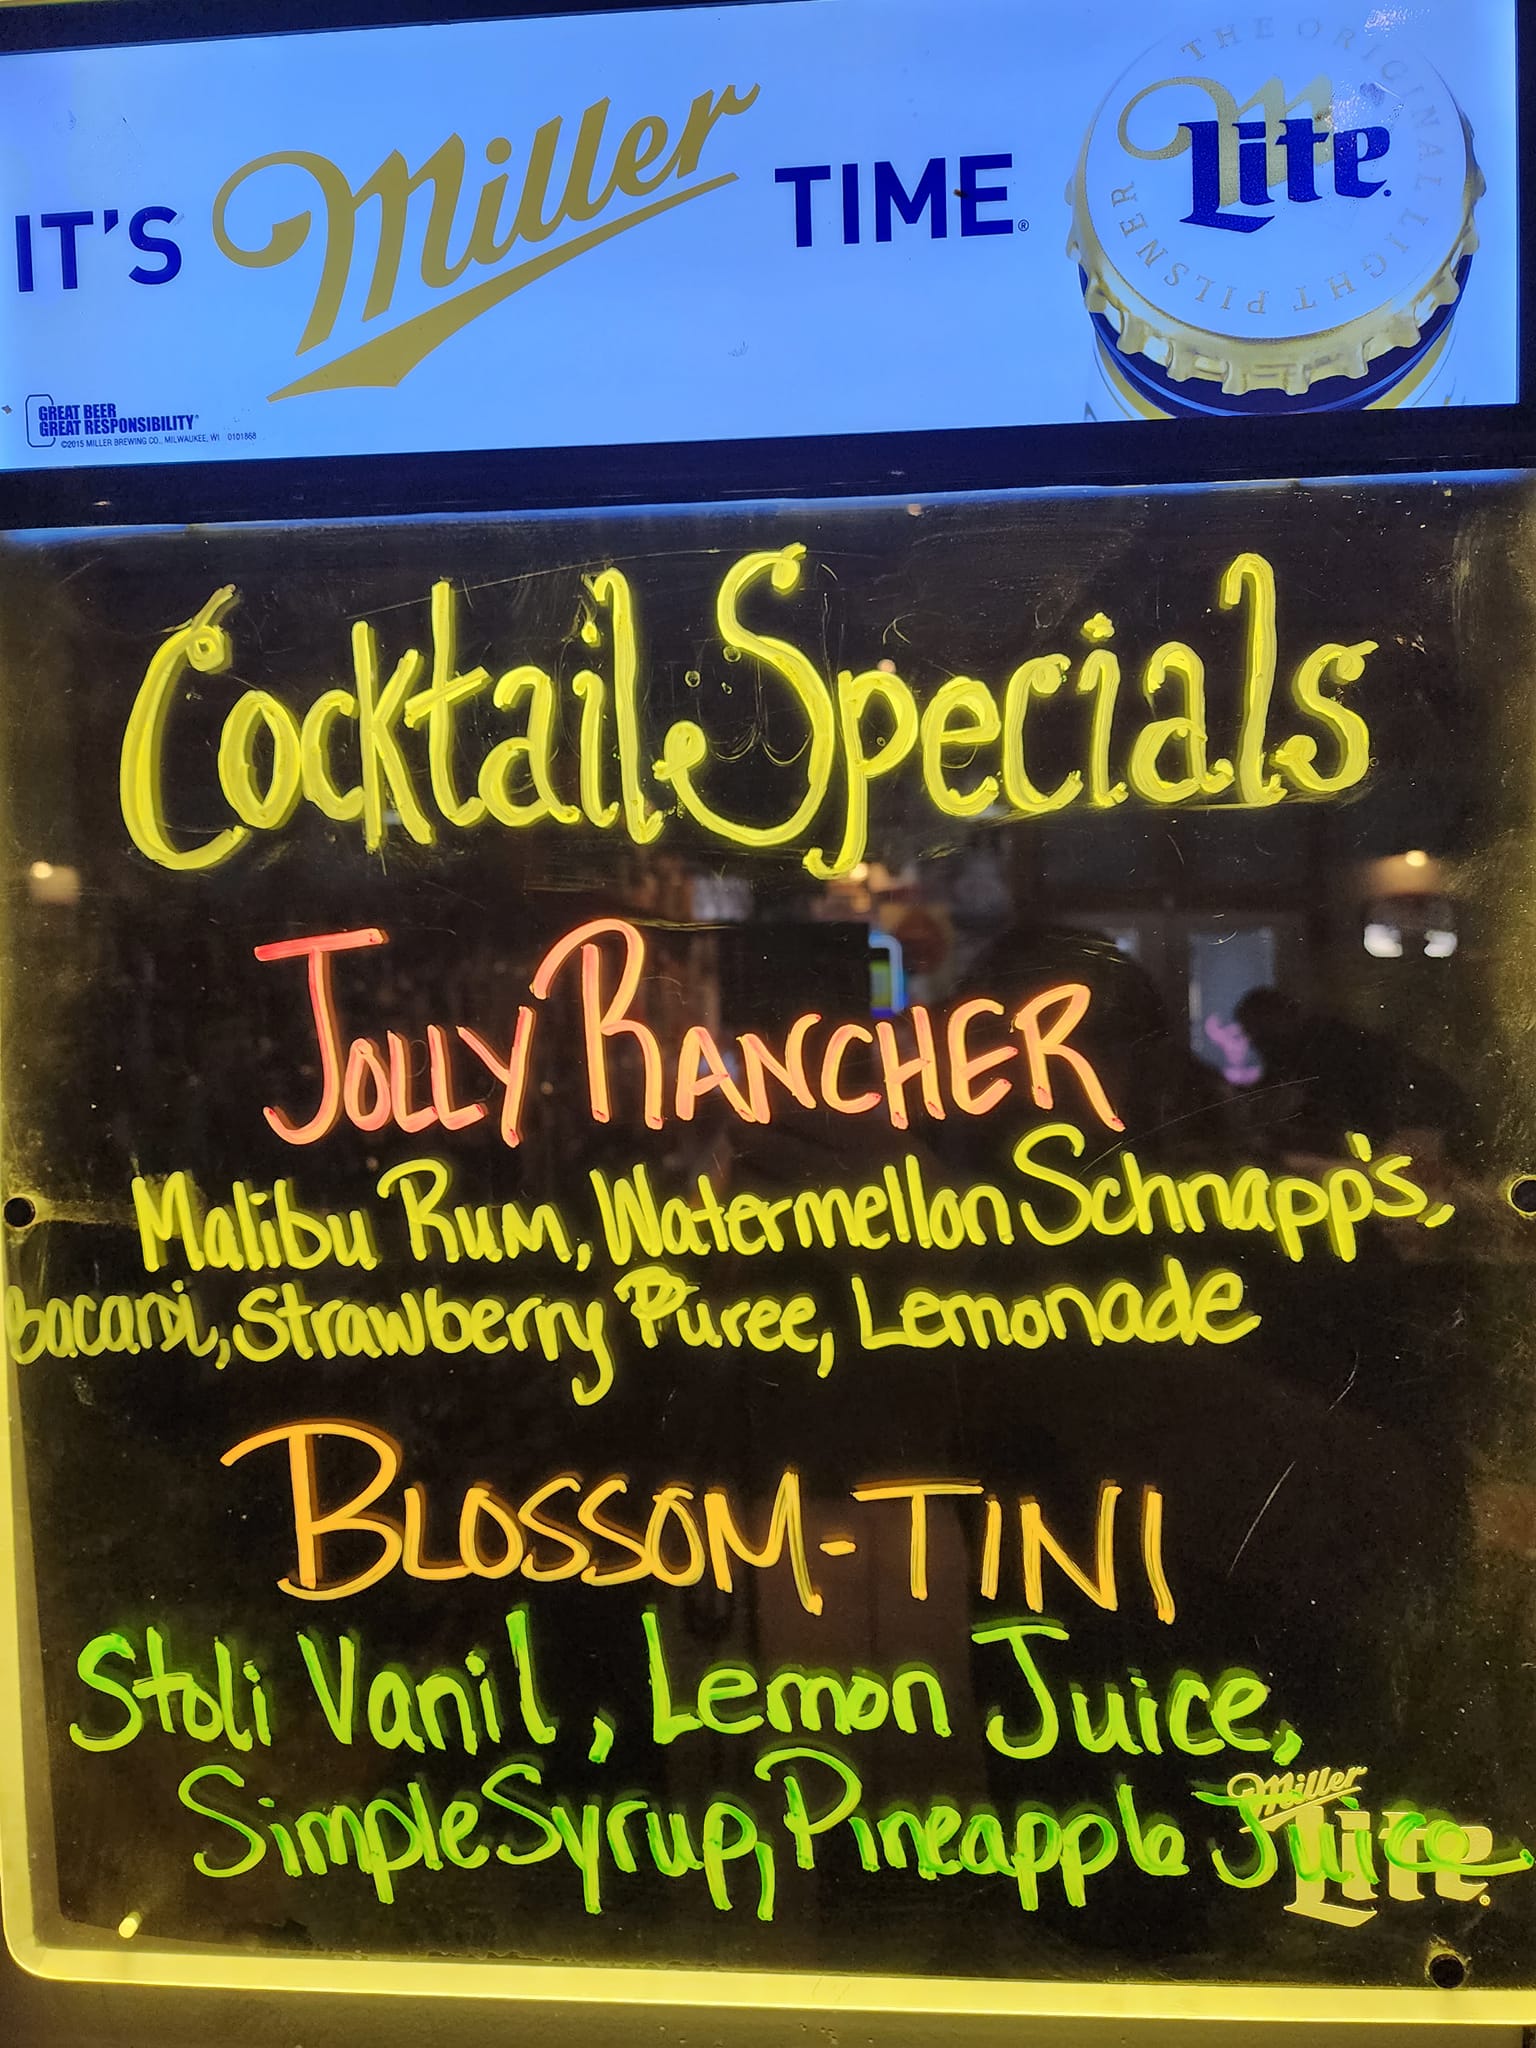 IT'S Miller TIME®
THE ORIGINAL LIGHT PILSNER
Miller Lite
GREAT BEER
GREAT RESPONSIBILITY®
©2015 MILLER BREWING CO., MILWAUKEE, WI 0101868
Cocktail Specials
JOLLY RANCHER
Malibu Rum, Watermellon Schnapp's,
Bacardi, Strawberry Puree, Lemonade
BLOSSOM-TINI
Stoli Vanil, Lemon Juice,
Simple Syrup, Pineapple Juice
Miller
Lite